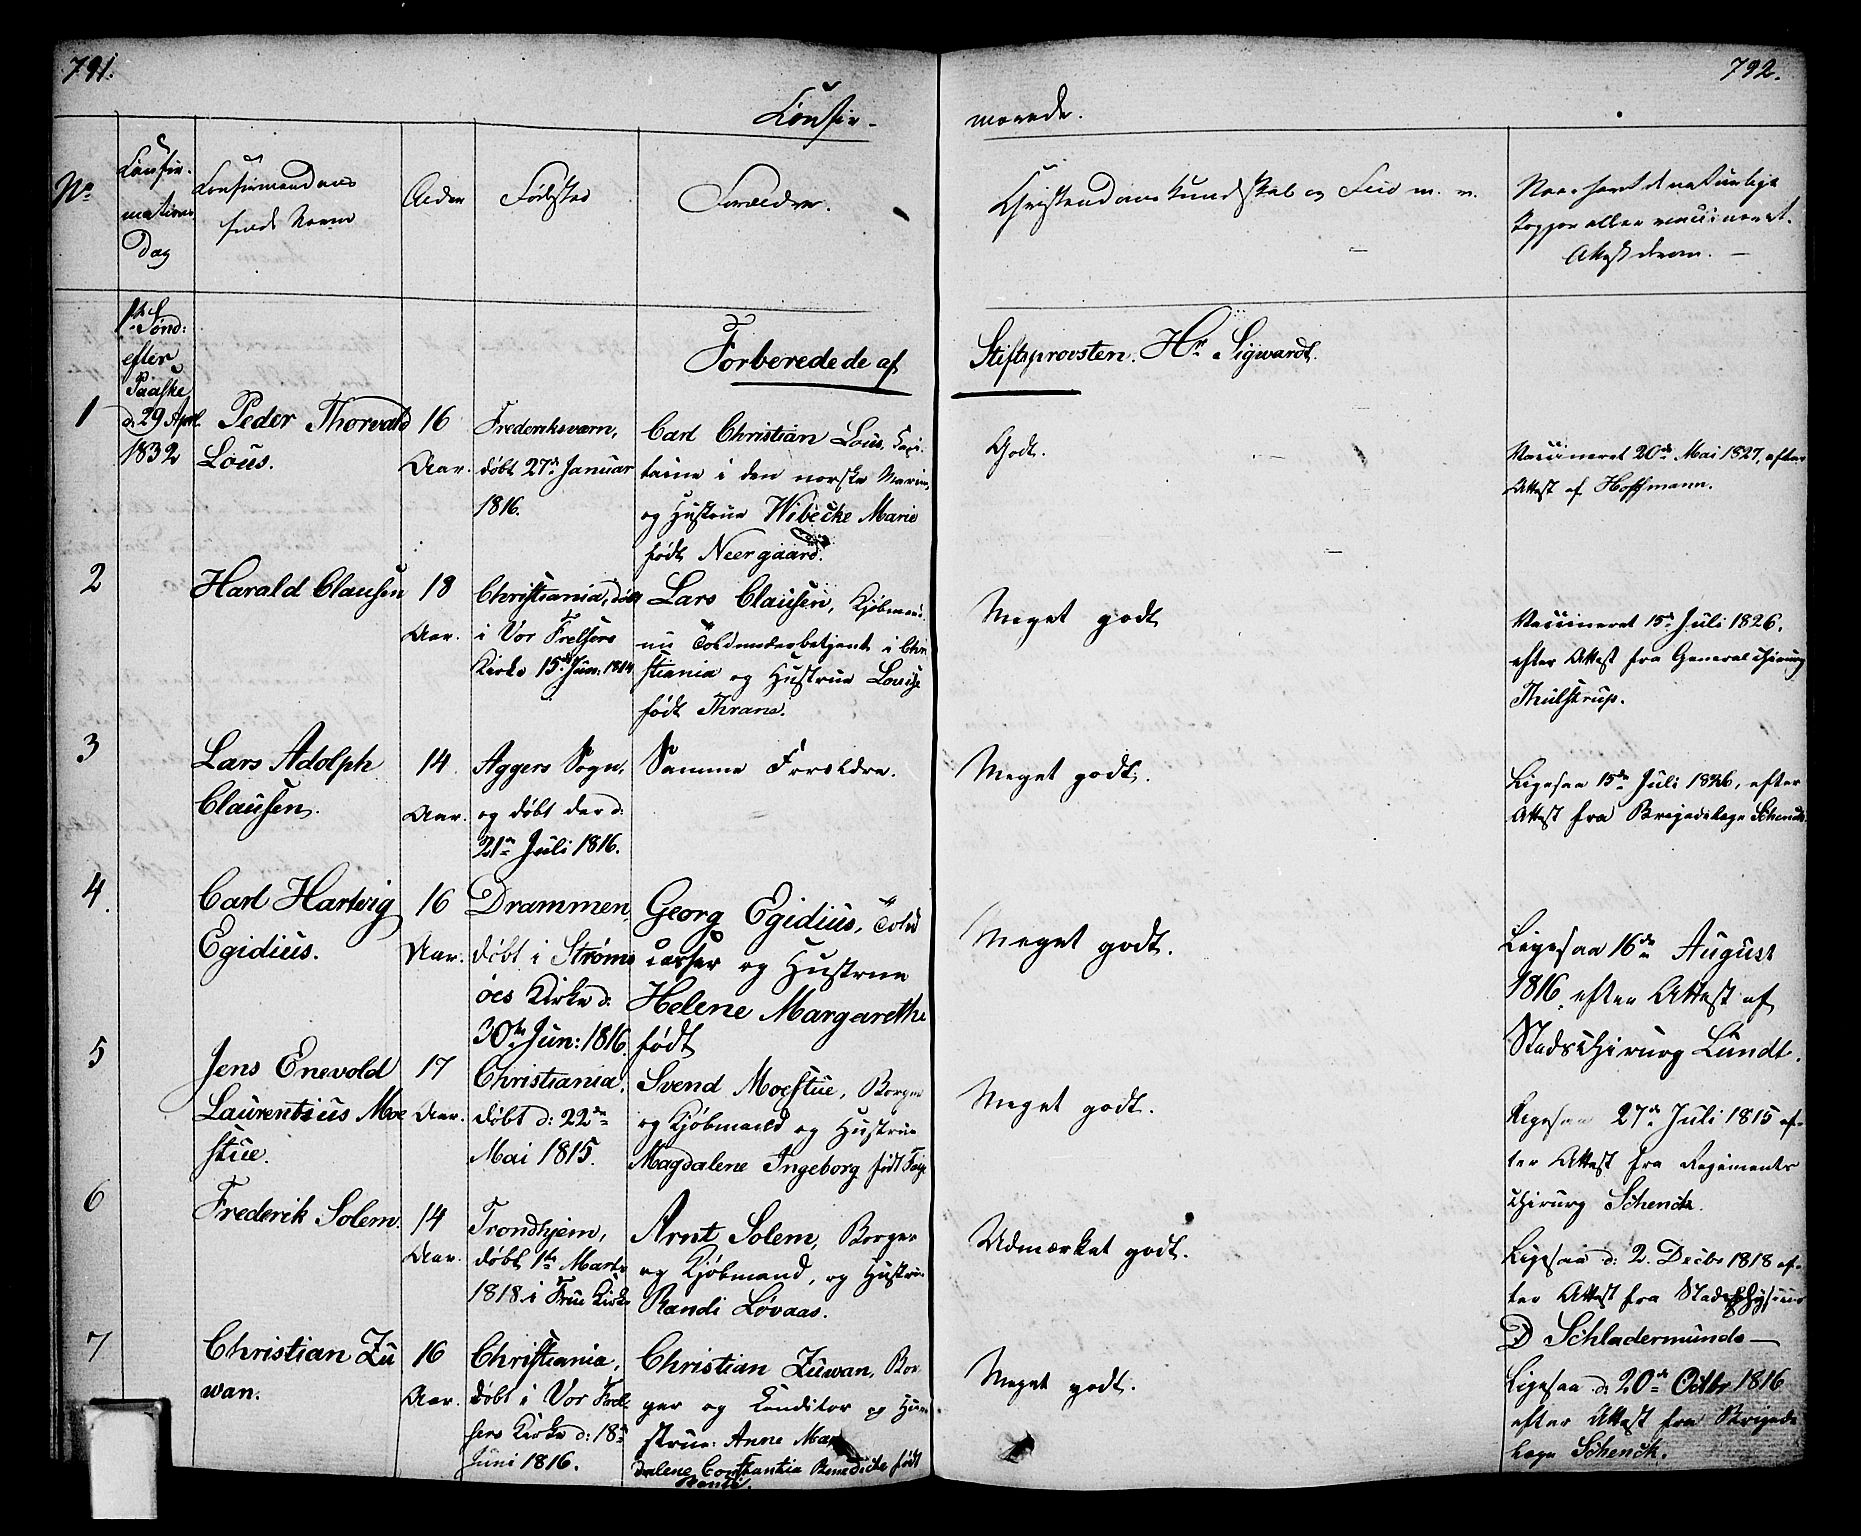 791.
792.
Confir-
morede.
No
Confir-
mations
Dag
Confirmandens
fulde Navn
Alder
Fødested
Forældre.
Christendomskundskab og Flid m. v.
Naar havt de naturlige
Kopper eller vaccineret.
Attest derom.
1te Sønd:
efter
Paaske
d. 29 April
1832
Forberedede af
Stiftsprovsten Hr. Sigwardt.
1
Peder Thorvald
Lous.
16
Aar.
Frederiksværn,
døbt 27de Januar
1816.
Carl Christian Lous, Capi-
taine i den norske Marine,
og Hustrue Wibecke Marie
født Neergaard.
Godt.
Vaccineret 20de Mai 1827, efter
Attest af Hoffmann.
2
Harald Clausen
18
Aar.
Christiania, døbt
i Vor Frelsers
Kirke 15de Jun: 1814
Lars Clausen, Kjøbmand
nu Toldunderbetjent i Chri
stiania og Hustrue Louise
født Thrane.
Meget godt
Vaccineret 15de Juli 1826,
efter Attest fra General Chirurg
Thulstrup.
3
Lars Adolph
Clausen.
14
Aar.
Aggers Sogn,
og døbt der d:
21de Juli 1816.
Samme Forældre.
Meget godt.
Ligesaa 15de Juli 1826, efter
Attest fra Brigadelæge Schenck
4.
Carl Hartvig
Egidius.
16
Aar.
Drammen,
døbt i Strøms
øes Kirke d:
30te Jun: 1816.
Georg Egidius, Told
casser og Hustrue
Helene Margarethe
født
Meget godt.
Ligesaa 16de August
1816. efter Attest af
Stadschirurg Lundt.
5
Jens Enevold
Laurentius Moe
stue.
17
Aar.
Christiania,
døbt d: 22de
Mai 1815.
Svend Moestue, Borger
og Kjøbmand og Hustrue
Magdalene Ingeborg født
Meget godt.
Ligesaa 27de Juli 1815 ef-
ter Attest fra Regiments
chirurg Schenck.
6
Frederik Solem.
14
Aar.
Trondhjem,
døbt 1te Marts
1818. i Frue Kirke
Arnt Solem, Borger
og Kjøbmand, og Hustrue
Randi Løvaas.
Udmærket godt.
Ligesaa d: 2. Decbr 1818 ef-
ter Attest fra Stadsphysicus
D Schladermundo
7
Christian Zu
wan.
16
Aar.
Christiania,
døbt i Vor Frel-
sers Kirke d: 18de
Juni 1816.
Christian Zuwan, Bor-
ger og Conditor og Hu-
strue: Anne Mag
dalene Constantia Benedicte født
Meget godt.
Ligesaa d. 20de Octbr 1816
efter Attest fra Brigade
læge Schenck.